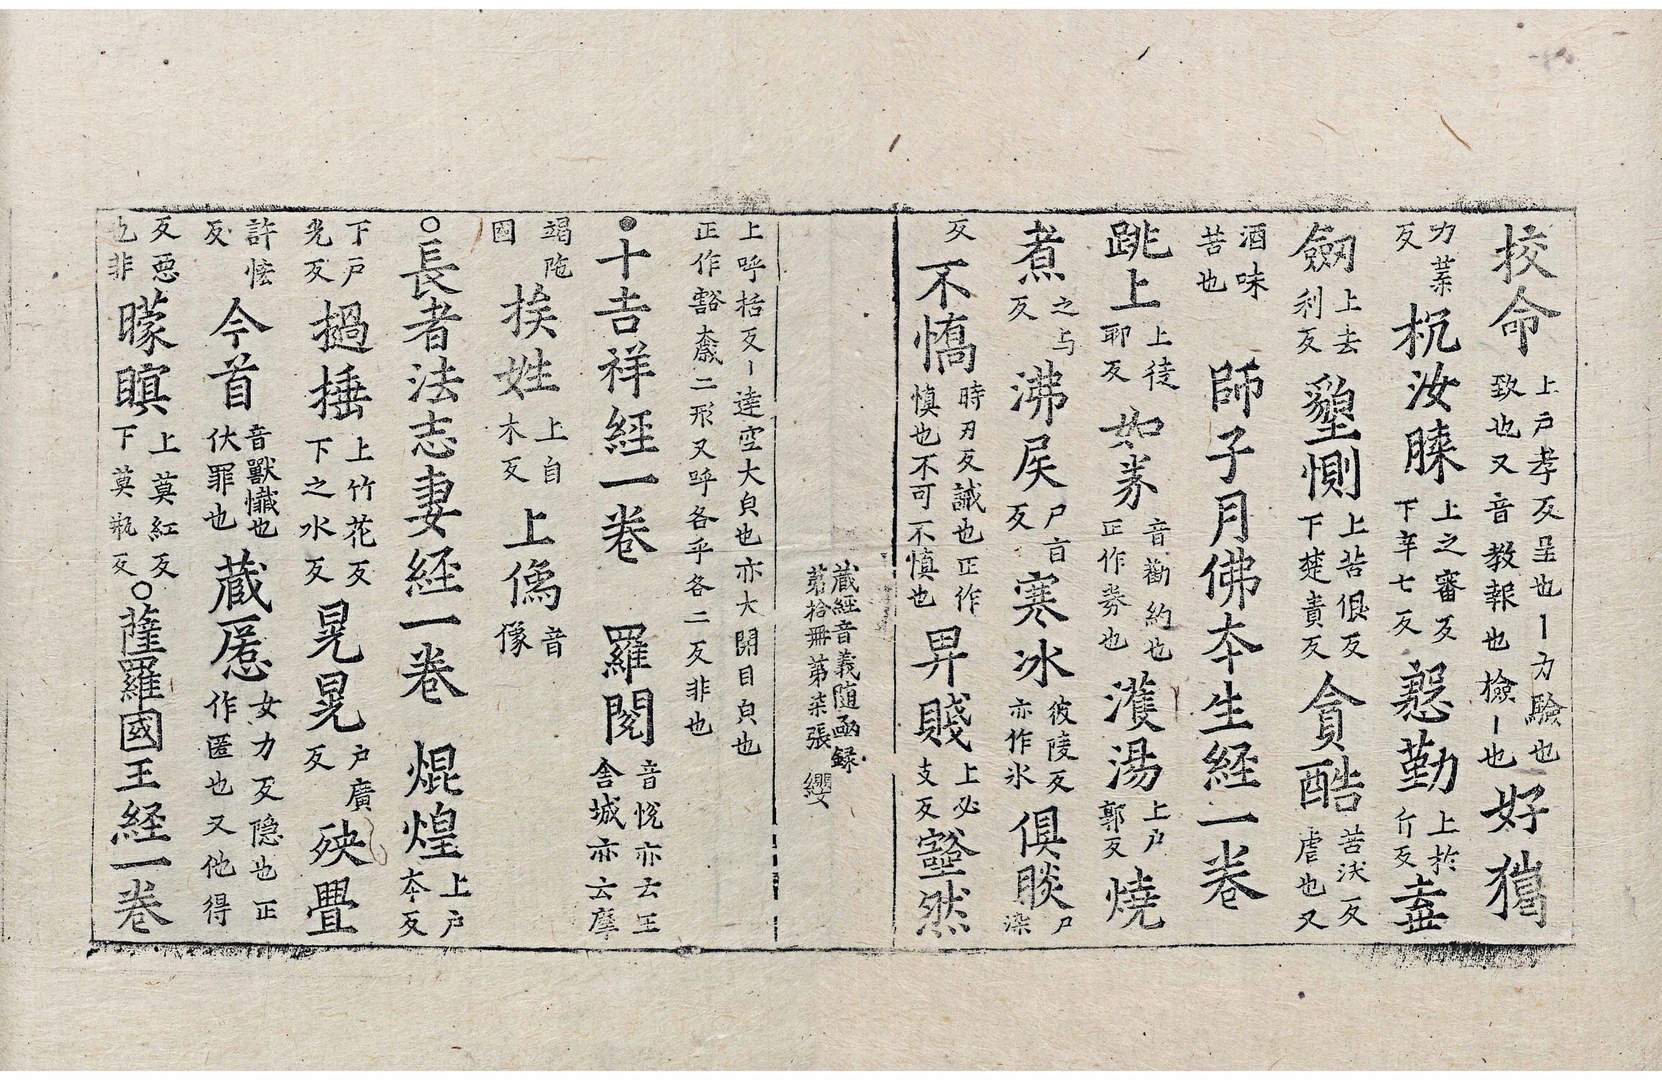 挍命上户孝反呈也丨力驗也致也又音教報也檢丨也好獦
力葉反杌汝睞上之審反下辛七反慇勤上於斤反盡
劒上去利反墾惻上苦佷反下楚責反貪酷苦沃反虐也又
酒味苦也師子月佛夲生経一卷
跳上上徒耶反如券音勸約也正作劵也濩湯上户郭反燒
煮之与反沸屎尸旨反寒冰彼陵反亦作氷俱睒尸染
反不憍慎時刃反誡也正作慎也不可不慎也昇賤上必支反豁然
藏經音義随函録
苐拾冊第柒張 纓
上呼括反丨達空大皃也亦大開目皃也正作豁二形又呼各乎各二反非也
●十吉祥経一卷 羅閱音悅亦云王舍城亦云摩
竭陁國挨姓上自木反上僞音像
○長者法志妻経一卷 焜煌上户夲反
下户光反撾捶上竹花反下之水反晃晃户廣反殃疊
許恡反今首音獸懺也伏罪也蔵慝女力反隐也正作匿也又他得
反悪也非曚瞑上莫紅反下莫瓶反○薩羅國王経一卷